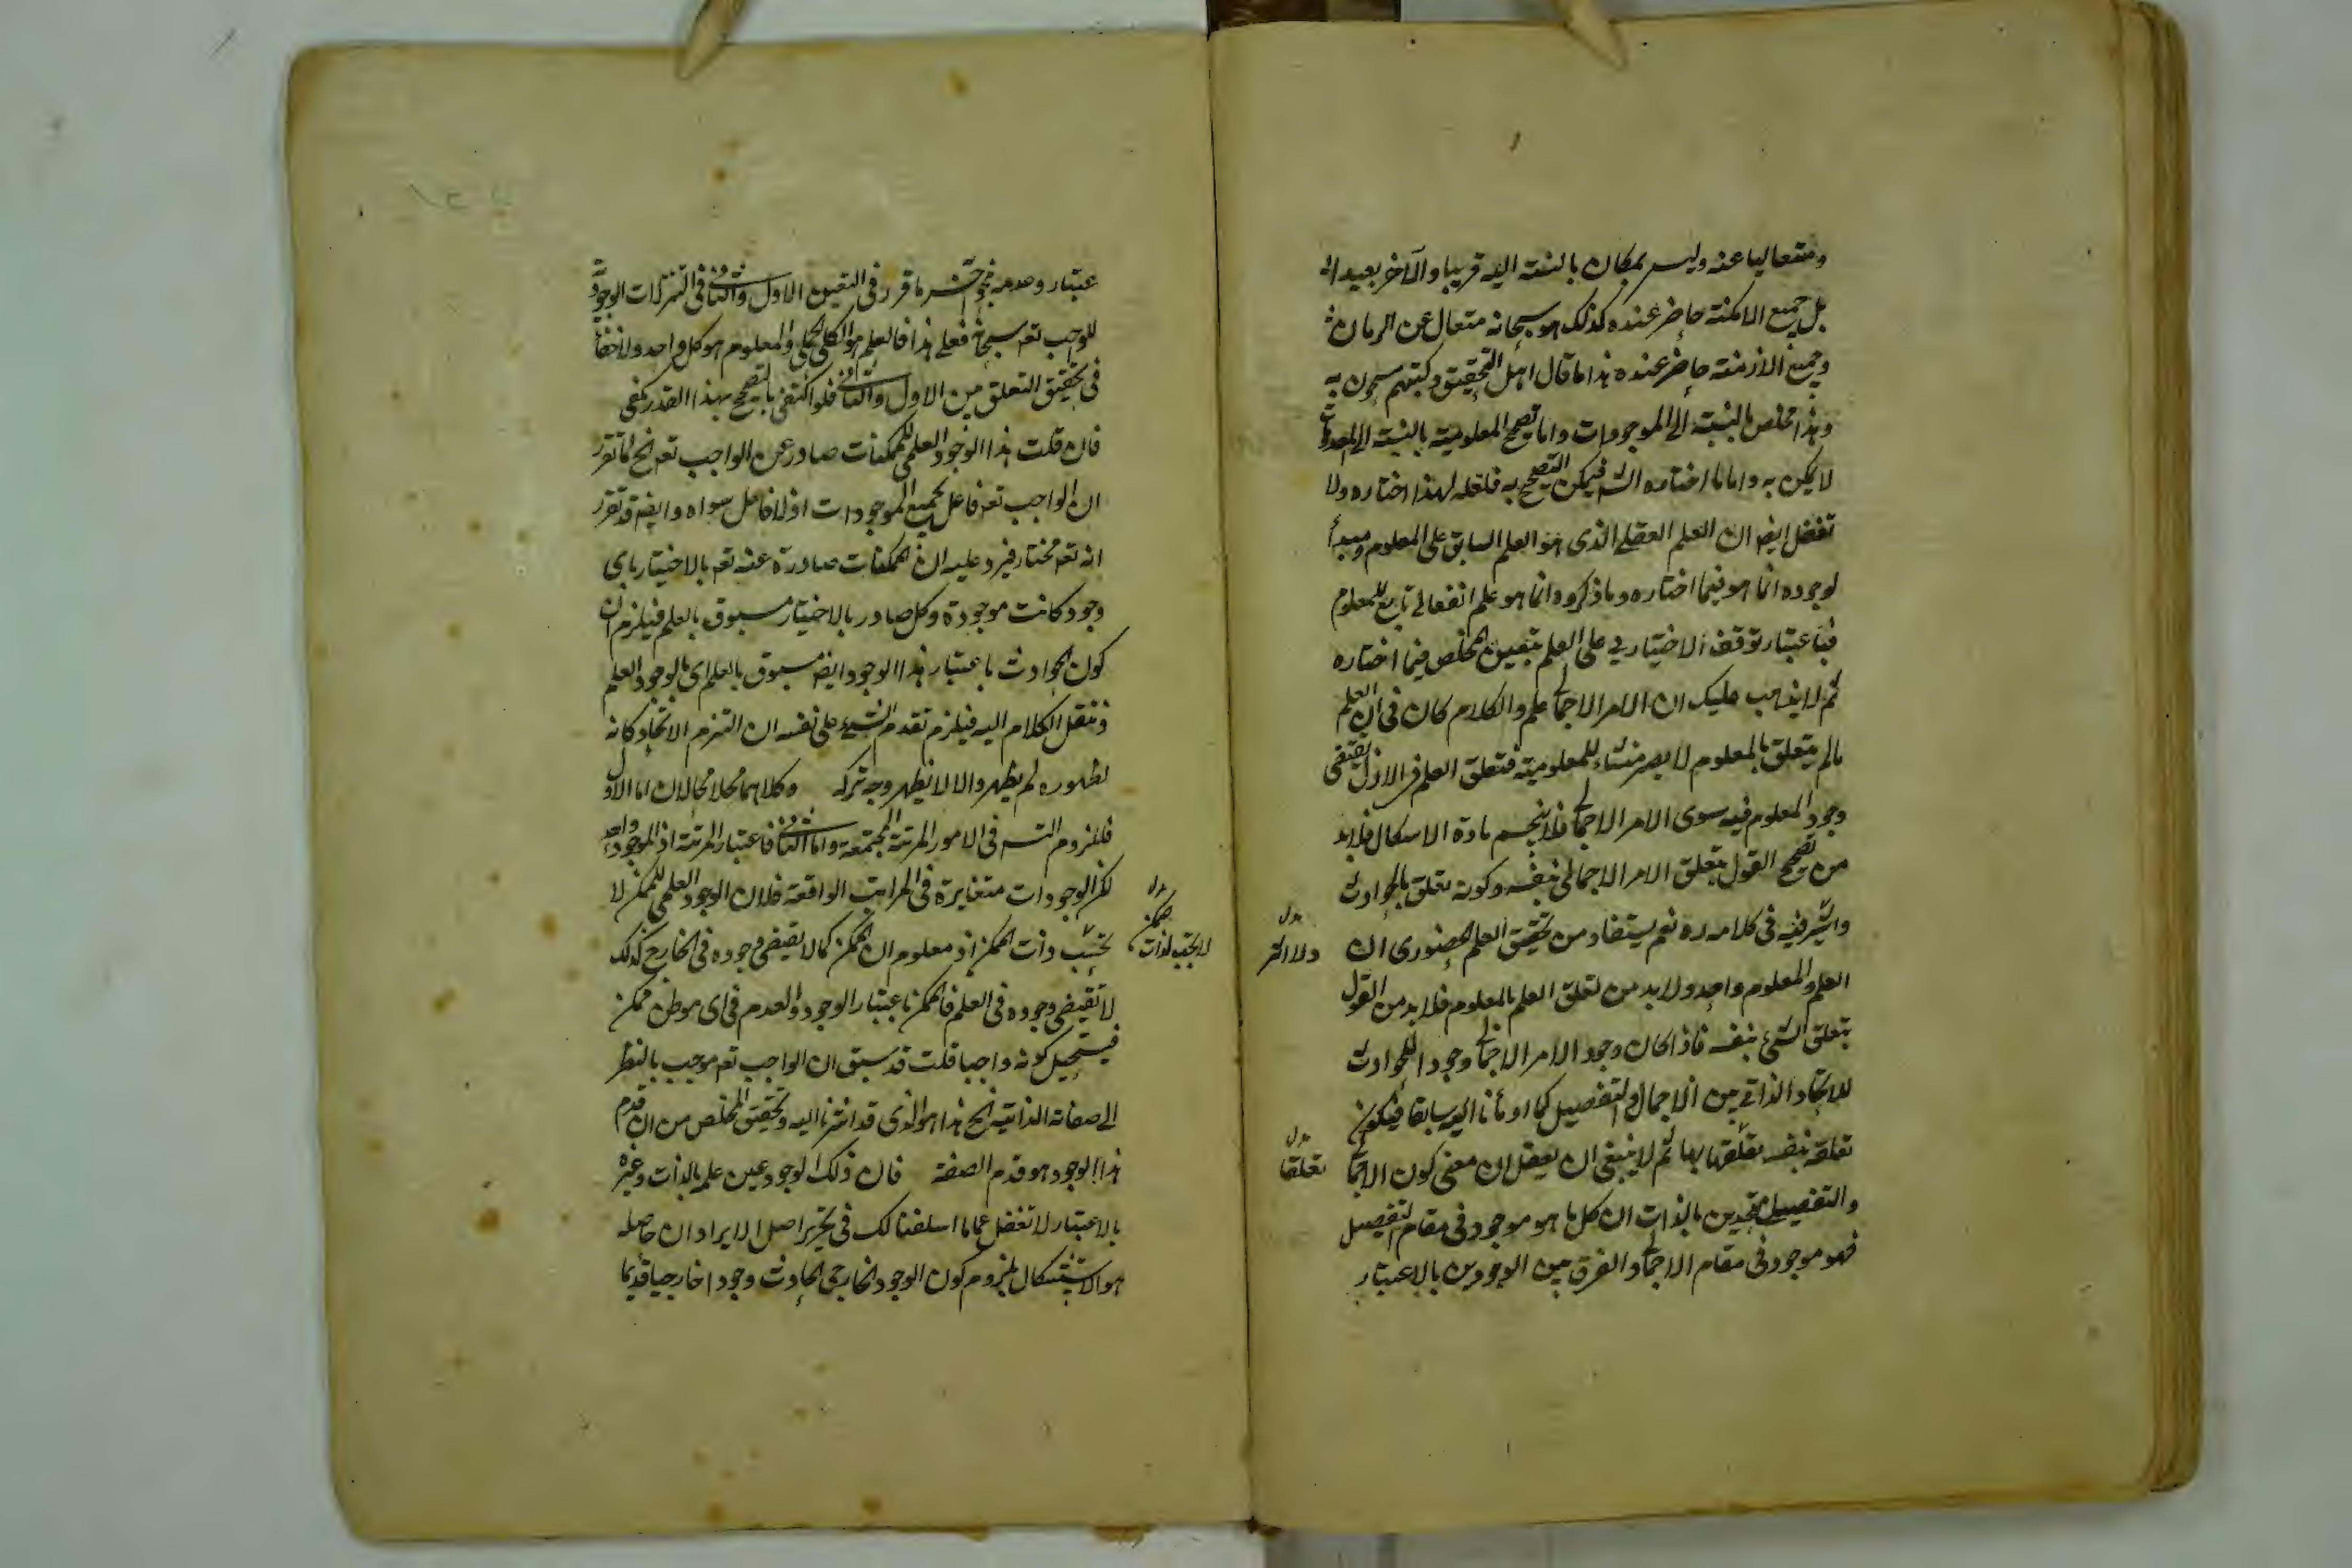 ومتعاليا عنه وليس بمكان بالنسبة اليه قريبا والآخر بعيدا
بل جميع الامكنة حاضر عنده كذلك هو سبحانه متعال عن الزمان
وجميع الازمنة حاضر عنده هذا ما قال اهل التحقيق وكتبهم
وهذا مخلص بالنسبة الى الموجودات واما تصحيح المعلومية بالنسبة الى المعدومات
لا يمكن به واما ما اختاره فيمكن التصحيح به فلعله لهذا اختاره ولا
تغفل ايضا ان العلم الفعلي الذى هو العلم السابق على المعلوم ومبدأ
لوجوده انما هو فيما اختاره وما ذكروه انما هو علم انفعالى تابع للمعلوم
فباعتبار توقف الاختيارى على العلم يتعين المخلص فيما اختاره
ثم لا يذهب عليك ان الامر الاجمالى علم والكلام كان فى ان العلم
ما لم يتعلق بالمعلوم لا يصير منشاء للمعلومية فتعلق العلم فى الازل يقتضى
وجود المعلوم فيه سوى الامر الاجمالى فلا ينحسم مادة الاشكال فلا بد
من تصحيح القول بتعلق الامر الاجمالى بنفسه وكونه تعلق بالحوادث
فيه فى كلامه ره نعم يستفاد من تحقيق العلم الحضورى ان
العلم والمعلوم واحد ولا بد من تعلق العلم بالمعلوم فلا بد من القول
بتعلق الشىء بنفسه فاذا كان وجود الامر الاجمالى وجود اللحوادث
للاتحاد الذاتى بين الاجمال والتفصيل كما اومأنا اليه سابقا فيكون
تعلقه بنفسه تعلقها بها ثم لا ينبغى ان يعقل ان معنى كون الاجمال
بدل تعلقا
والتفصيل متحدين بالذات ان كل ما هو موجود فى مقام التفصيل
فهو موجود فى مقام الاجمال والفرق بين الوجودين بالاعتبار
عتبار وعدمه ما قرر فى التعين الاول والثانى فى التنزلات الوجودية
للواجب تعه سبحانه فعلى هذا فالعلم هو الكلى الجملى والمعلوم هو كل واحد ولا خفاء
فى تحقيق التعلق بين الاول والثانى فلو اكتفى بالتصحيح بهذا القدر كفى
فان قلت هذا الوجود العلمى للممكنات صادر عن الواجب تعه الخ لما تقرر
ان الواجب تعه فاعل لجميع الموجودات اذ لا فاعل سواه وايضا قد تقرر
انه تعه مختار فيرد عليه ان الممكنات صادرة عنه تعه بالاختيار باى
وجود كانت موجودة وكل صادر بالاختيار مسبوق بالعلم فيلزم ان
كون الحوادث باعتبار هذا الوجود ايضا مسبوق بالعلم اى بالوجود العلمى
وننقل الكلام اليه فيلزم تقدم الشىء على نفسه ان التزم الاتحاد كانه
لظهوره لم يظهر والا لا يظهر وجه تركه وكلاهما محالان اما الاول
فللزوم التسه فى الامور المرتبة المجتمعة واما الثانى فاعتبار المرتبة اذ الموجود واحد
لكن الوجودات متغايرة فى المراتب الواقعة فلان الوجود العلمى للممكن لا
بدل
ممكن
لا يجب لذات
يجب ذات الممكن اذ معلوم ان الممكن كما لا يقتضى وجوده فى الخارج كذلك
لا يقتضى وجوده فى العلم فالممكن باعتبار الوجود والعدم فى اى موطن ممكن
فيستحيل كونه واجبا قلت قد سبق ان الواجب تعه موجب بالنظر
الى صفاته الذاتية الخ هذا هو الذى قد اشرنا اليه وتحقيق المخلص من ان قدم
هذا الوجود هو قدم الصفة فان ذلك الوجود عين علمه بالذات وغيره
بالاعتبار لا تغفل عما اسلفنا لك فى تحرير اصل الايراد ان حاصله
هو الاستشكال بلزوم كون الوجود الخارجى للحادث وجودا خارجيا قديما